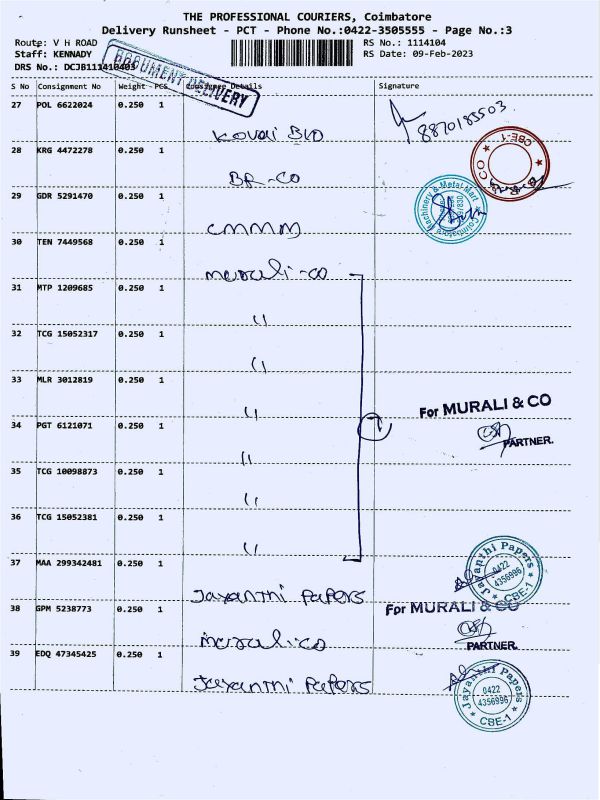 THE PROFESSIONAL COURIERS, Coimbatore
Delivery Runsheet - PCT - Phone No.:0422-3505555 - Page No.:3
Route: V H ROAD
RS No.: 1114104
Staff: KENNADY
RS Date: 09-Feb-2023
DRS No.: DCJB111410403
DOCUMENT DELIVERY
S No Consignment No Weight PCS Consignee Details Signature
27 POL 6622024 0.250 1 Kovai BVD
8870183503
28 KRG 4472278 0.250 1 BR-CO
B.R. CO CBE-1
29 GDR 5291470 0.250 1 CMMM
Coimbatore Machinery & Metal Mart
30 TEN 7449568 0.250 1 Murali-co
31 MTP 1209685 0.250 1 "
32 TCG 15052317 0.250 1 "
33 MLR 3012819 0.250 1 "
For MURALI & CO
34 PGT 6121071 0.250 1 "
7
PARTNER.
35 TCG 10098873 0.250 1 "
36 TCG 15052381 0.250 1 "
37 MAA 299342481 0.250 1 Jayanthi Papers
Jayanthi Papers 0422 4356996 CBE-1
38 GPM 5238773 0.250 1 Murali-co
For MURALI & CO
PARTNER.
39 EDQ 47345425 0.250 1 Jayanthi Papers
Jayanthi Papers 0422 4356996 CBE-1